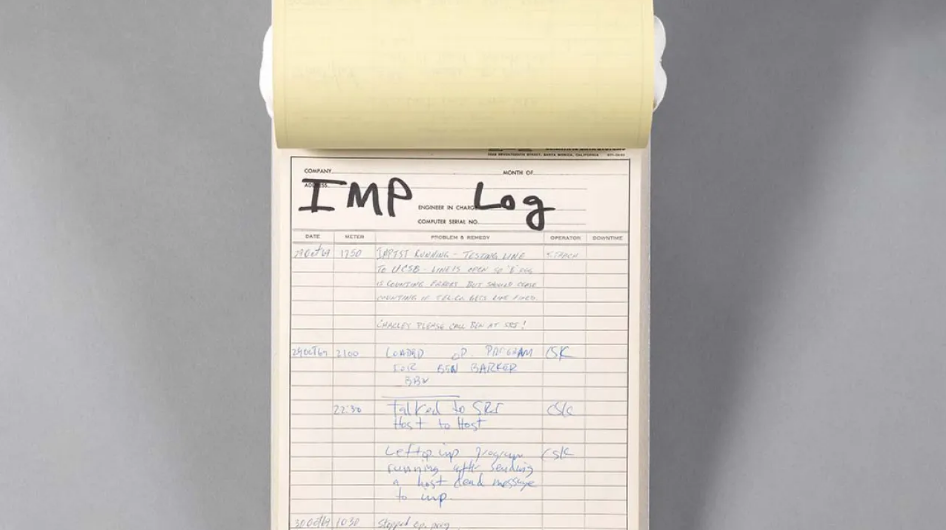 COMPANY MONTH OF
ADDRESS
IMP Log
ENGINEER IN CHARGE
COMPUTER SERIAL NO.
DATE METER PROBLEM & REMEDY OPERATOR DOWNTIME
29 Oct 69 1750 RUNNING - TESTING LINE
TO UCSB - LINE IS OPEN SO
IS COUNTING ERRORS BUT SHOULD CEASE
COUNTING IF TELCO GETS LINE FIXED.
CHARLEY PLEASE CALL BEN AT SRI!
29OCT69 2100 LOADED OP. PROGRAM CSK
FOR BEN BARKER
BBN
22:30 Talked to SRI CSK
Host to Host
Left op. imp program CSK
running after sending
a host dead message
to imp.
30 Oct 69 1038 Stopped op. prog.